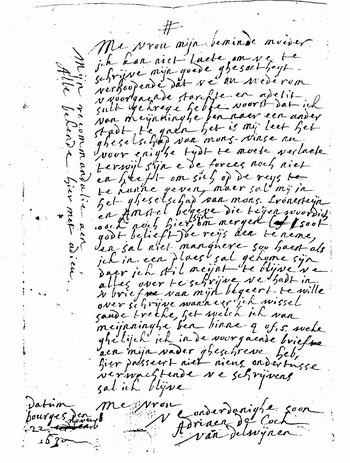 Me vrou mijn beminde moeder
ick kan niet laete om ve te
schrijve mijn goede ghesontheyt
verhoopende dat ve on wederom
v voorgaende starckte en apetit
sult gekrege hebbe voorts dat ick
van meijninghe ben naer een ander
stadt te gaen het is mij leet het
gheselschap van mons. vinse
voor enighe tydt te moete verlaete
terwijl sijn e de forces noch niet
en heeft om sich op de reijs te
te kunne geven maer sal mij in
het gheselschap van mons. Croneste
en Amstel begeve die teijen woordich
oock noch hier om mergen soot
godt belieft de reijs aen te neme
en sal niet manghere soo haest als
ick in een plaets sal gekome sijn
daer ick stil meijnt te blijve ve
alles over te schrijve ve hadt in
v brief van mijn begeert te wille
over schrijve wanneer ick wissel
soude trecke, het welck ick van
meijninghe ben binne 4 of 5 weke
ghelijck ick in de voorgaende brief
aen mijn vader gheschreve heb,
hier passeert niet niens ondertussche
verwachtende ve schrijvens
sal ick blijve
Me vrou
ve onderdanighe soon
Adriaen de Cock
van delwijnen
Datum
bourges den
22
1680
Mijn recommandatie aen
Alle bekende hier mede adieu.